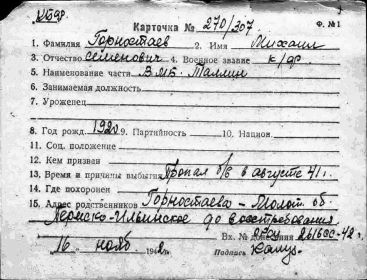 Карточка № 270/307 Ф. №1
1. Фамилия Горностаев 2. Имя Михаил
3. Отчество Семенович 4. Военное звание к/фл
5. Наименование части В.М.Б. Таллин
6. Занимаемая должность
7. Уроженец
8. Год рожд. 1920 9. Партийность 10. Национ.
11. Соц. положение
12. Кем призван
13. Время и причины выбытия Пропал б/в в августе 41 г.
14. Где похоронен
15. Адрес родственников Горностаева – Молот. об.
Пермско-Ильинское до востребования
Вх. № 2616сс-42 г.
16 нояб 1942 Подпись